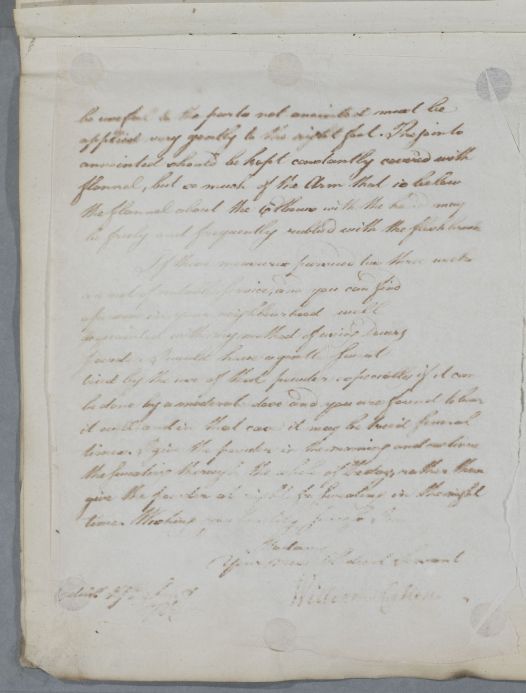 be useful to the parts not anointed must be
applied very gently to the right foot. The joints
annointed should be kept constantly covered with
flannel, but so much of the Arm that is below
the flannel about the Elbow with the hand may
be freely and frequently rubbed with the flesh brush
If these measures pursued two three weeks
are not of service, and you can find
a person in your neighbourhood well
acquainted with my method of using Dovers
Powder I would have a gentle sweat
tried by the use of that powder especially if it can
be done by a moderate dose and you are found to bear
it well and in that case it may be tried several
times. I give the powder in the morning and continue
the sweating through the whole of the day, rather than
give the powder at night &c sweating in the night
time. Wishing you
Madam
Your most obedient Servant
William Cullen